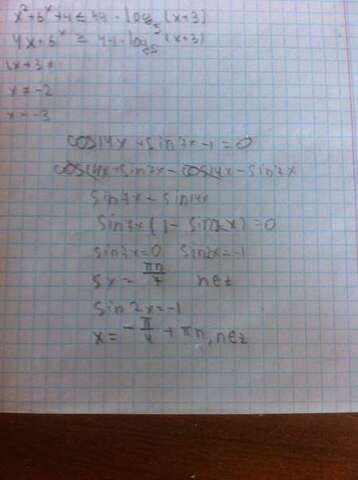 x²+5ˣ+4 ≤ 44 - log₅(x+3)
4x+5ˣ ≤ 44 - log₅(x+3)
(x+3 =
x ≠ -2
x = -3
cos14x + sin7x - 1 = 0
cos14x + sin7x - cos14x - sin7x
sin7x - sin14x
sin7x(1 - sin2x) = 0
sin7x=0 sin2x=-1
5x = πn/7 n∈z
sin2x=-1
x = -π/4 + πn, n∈z